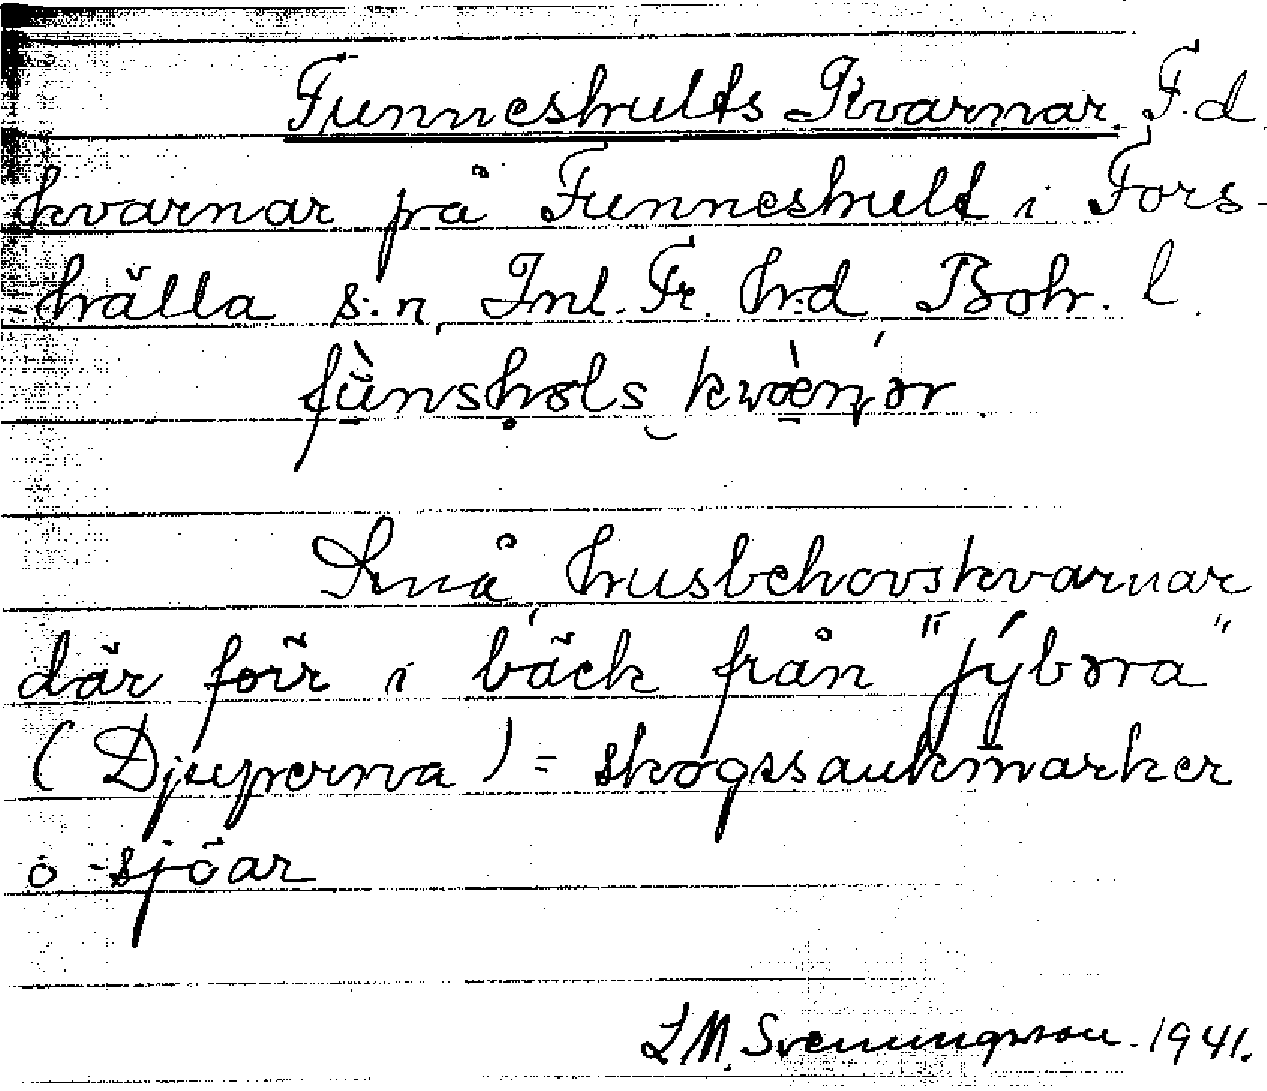 Funneshults Kvarnar. F.d.
kvarnar på Funneshult i Fors-
hälla s:n, Inl. Fr. h:d, Boh. l.
fùnshols kwènar.
Små husbehovskvarnar
där förr i bäck från "jýbora"
(Djuperna) = skogssankmarker
o sjöar
L M. Svenungsson. 1941.